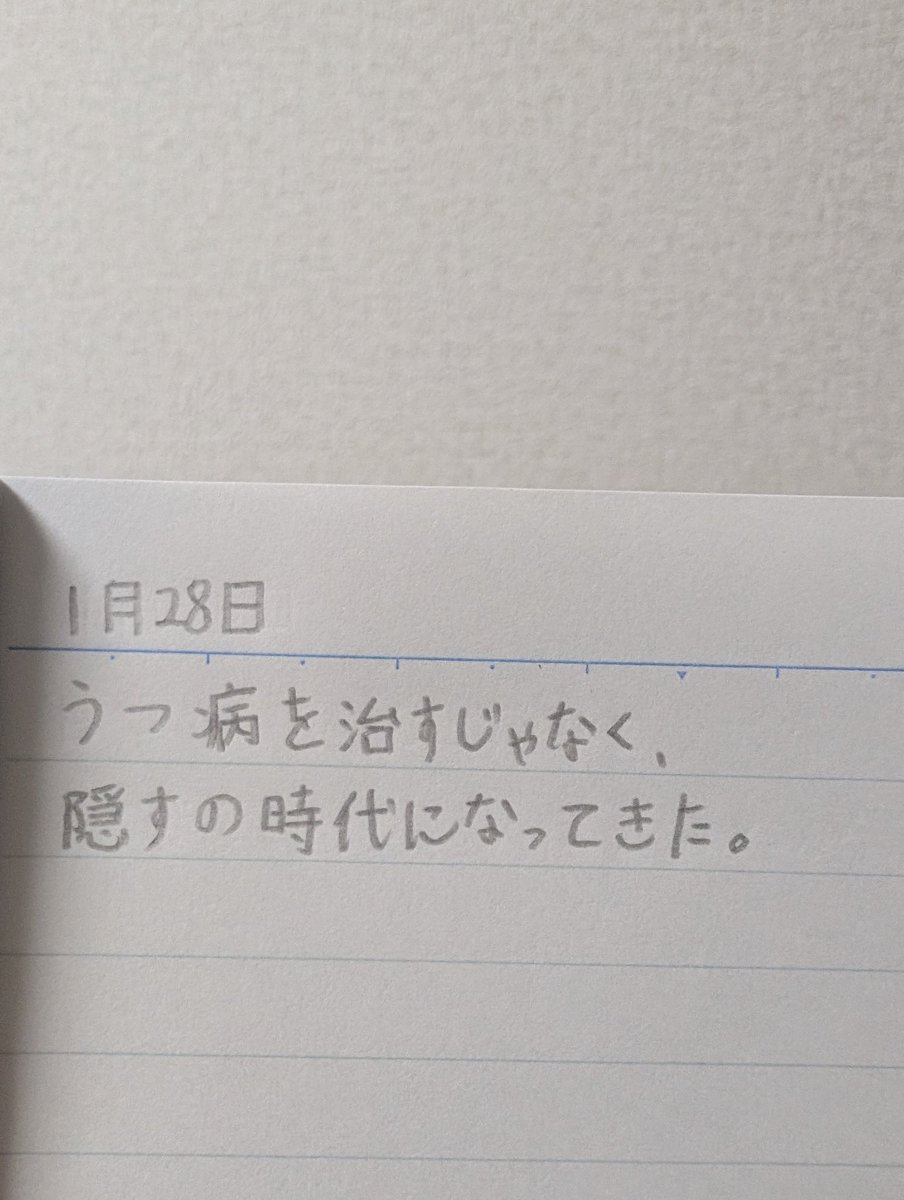 1月28日
うつ病を治すじゃなく、
隠すの時代になってきた。